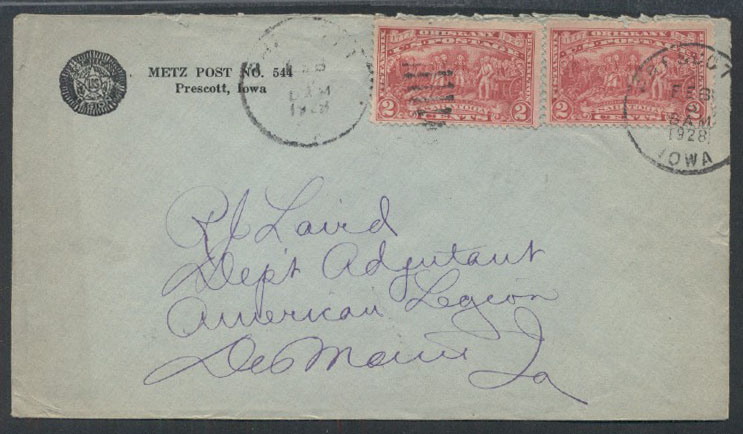 METZ POST NO. 544
Prescott, Iowa
FEB
8 AM
1928
ORISKANY
U.S. POSTAGE
2 CENTS 2
ORISKANY
U.S. POSTAGE
2 CENTS 2
FEB
8 AM
1928
IOWA
RJ Laird
Dep't Adjutant
American Legion
Des Moines Ia